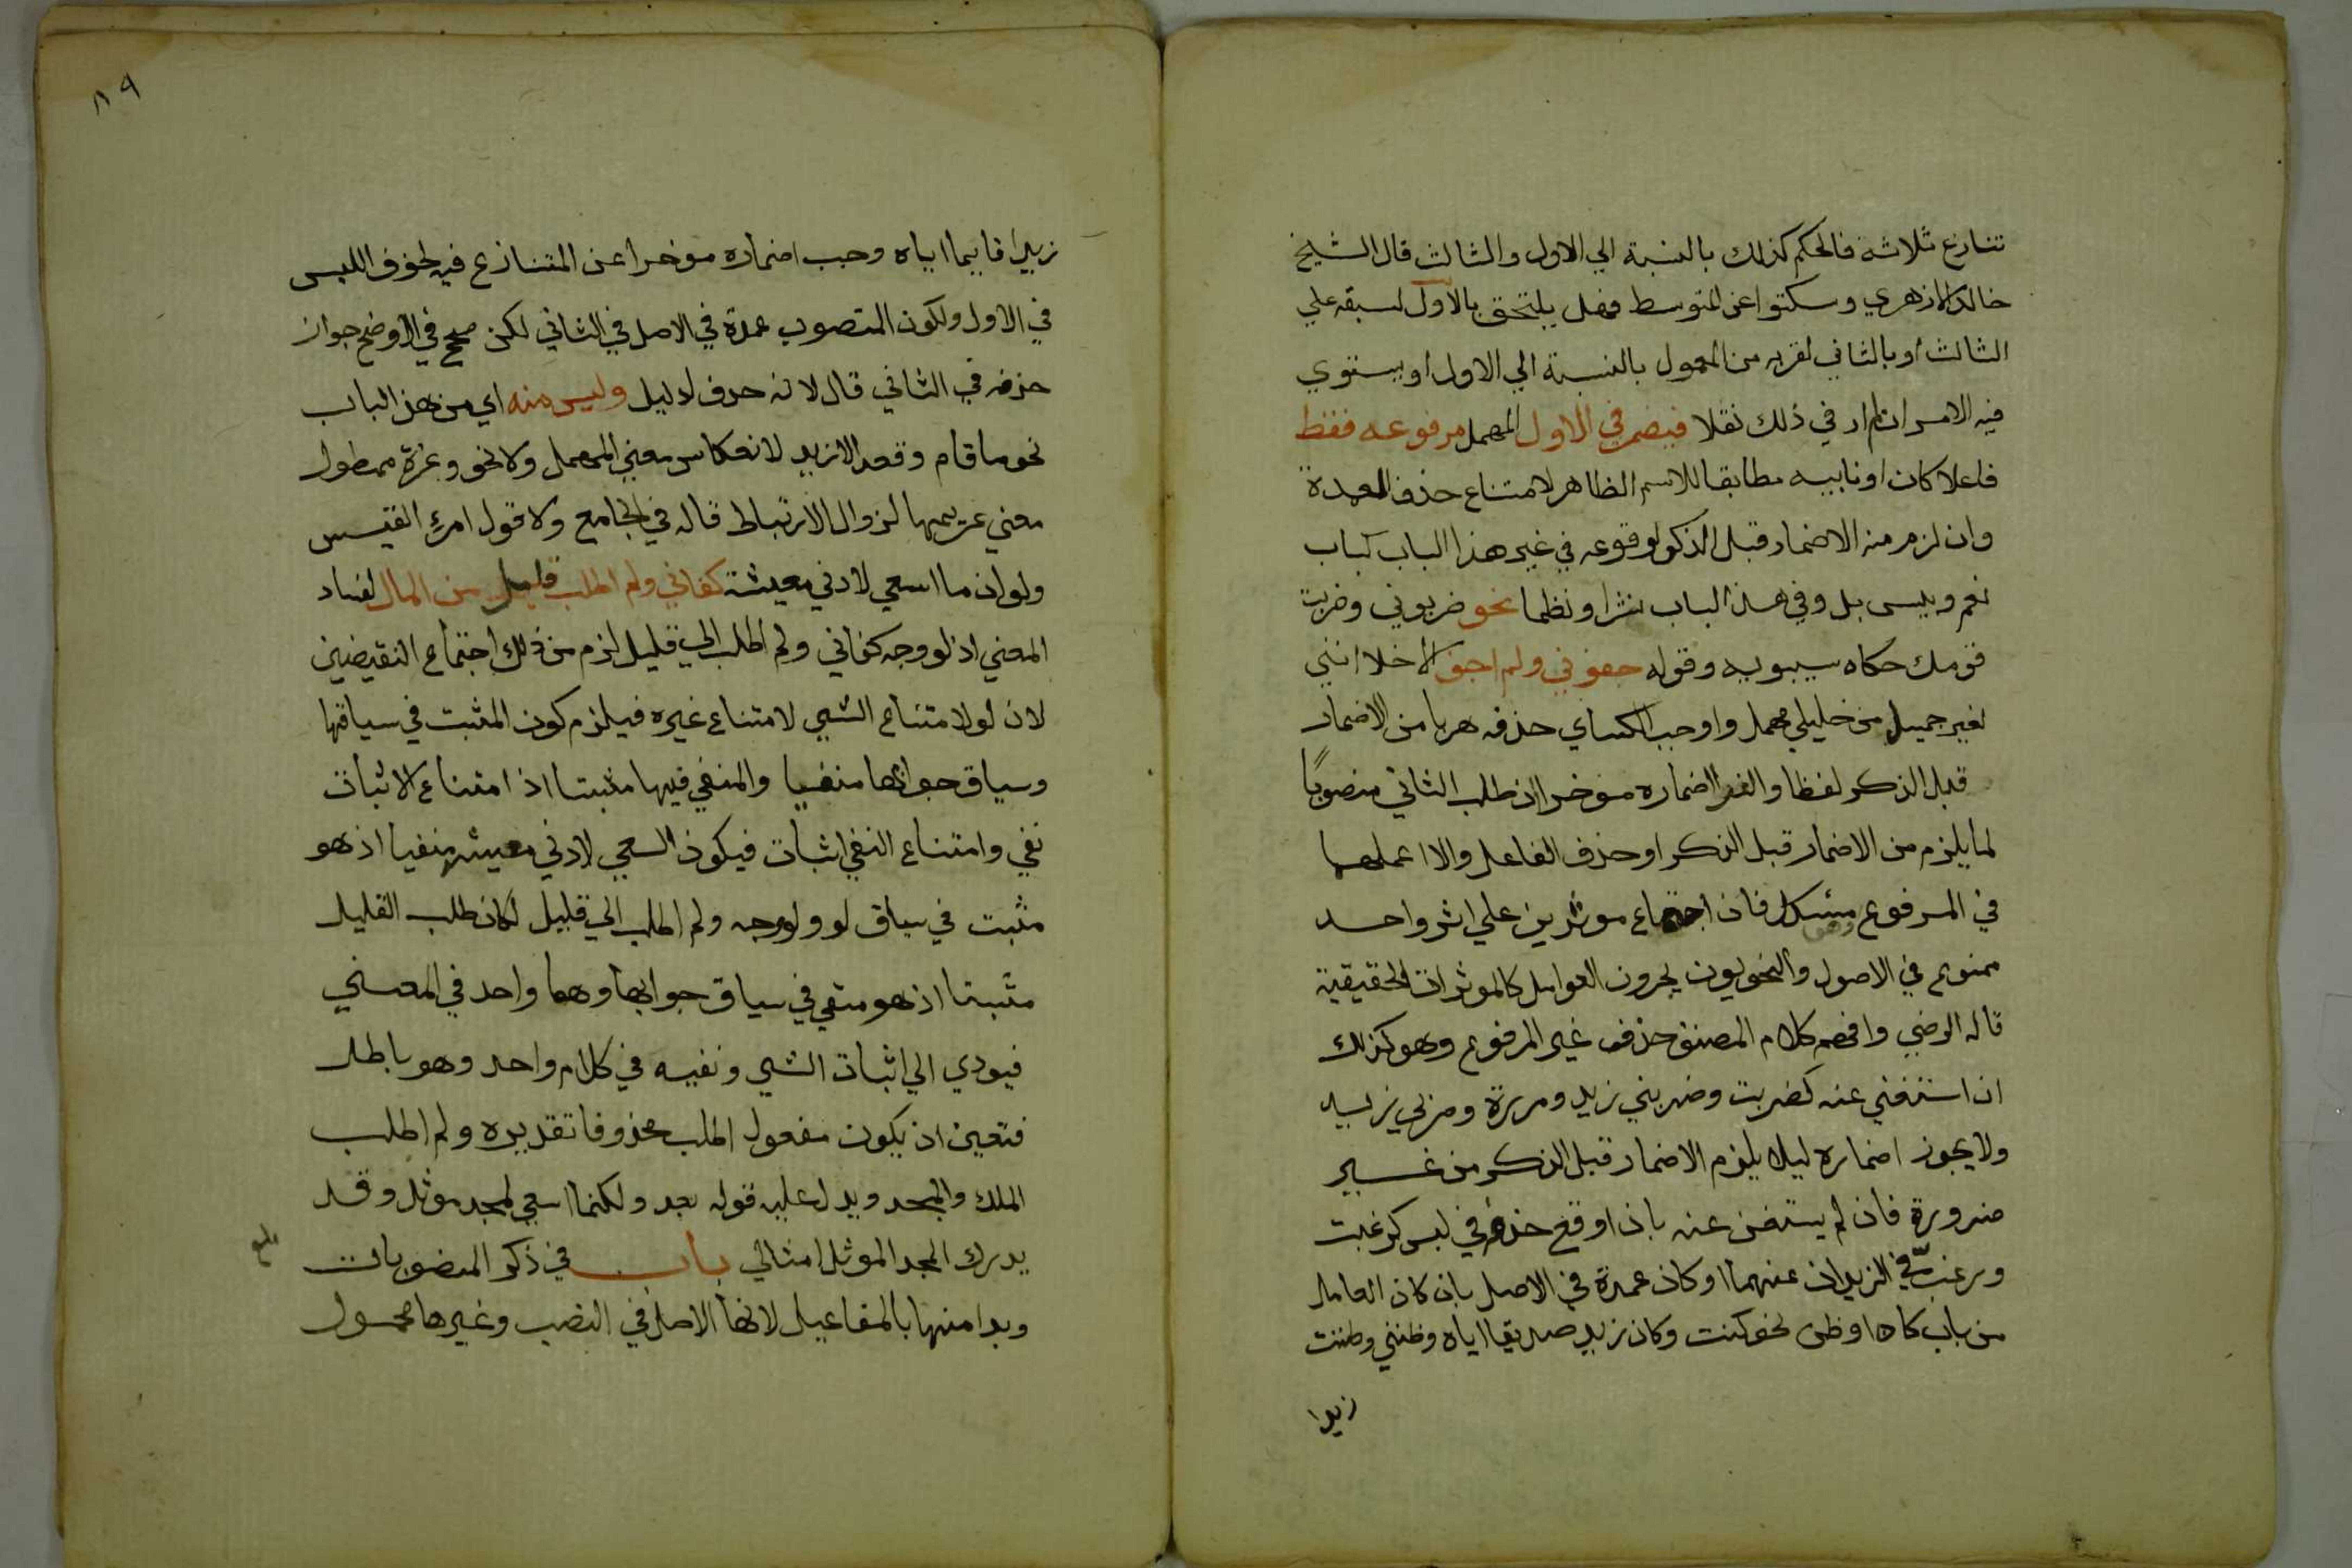 تنازع ثلاثة فالحكم كذلك بالنسبة الي الاول والثالث قال الشيخ
خالد الازهري وسكتوا عن المتوسط فهل يلتحق بالاول لسبقه علي
الثالث او بالثاني لقربه من المعمول بالنسبة الي الاول او يستوي
فيه الامران لم ار في ذلك نقلا فيضمر في الاول المهمل مرفوعه فقط
فاعلا كان او نايبه مطابقا للاسم الظاهر لامتناع حذف العمدة
وان لزم منه الاضمار قبل الذكر لوقوعه في غير هذا الباب كباب
نعم وبيس بل وفي هذا الباب نثرا ونظما نحو ضربوني وضربت
قومك حكاه سيبويه وقوله جفوني ولم اجف الاخلا انني
لغير جميل من خليلي مهمل واوجب الكساي حذفه هربا من الاضمار
قبل الذكر لفظا والفرا اضماره موخرا ان طلب الثاني منصوبًا
لما يلزم من الاضمار قبل الذكر او حذف الفاعل والا اعملهما
في المرفوع وهو مشكل فان اجتماع موثرين علي اثر واحد
ممنوع في الاصول والنحويون يجرون العوامل كالموثرات الحقيقية
قاله الرضي وافهم كلام المصنف حذف غير المرفوع وهو كذلك
ان استغني عنه كضربت وضربني زيد ومررت ومر بي زيد
ولا يجوز اضماره ليلا يلزم الاضمار قبل الذكر من غير
ضرورة فان لم يستغن عنه بان اوقع حذفه في لبس كرغبت
ورغب في الزيدان عنهما او كان عمدة في الاصل بان كان العامل
من باب كان او ظن نحو كنت وكان زيد صديقا اياه وظنني وظننت
زيدا
٨٩
زيدا قايما اياه وجب اضماره موخرا عن المتنازع فيه لخوف اللبس
في الاول ولكون المنصوب عمدة في الاصل في الثاني لكن صحح في الاوضح جواز
حذفه في الثاني قال لانه حذف لدليل وليس منه اي من هذا الباب
نحو ما قام وقعد الا زيد لانعكاس معني المهمل ولا نحو وعزة ممطول
معني غريمها لزوال الارتباط قاله في الجامع ولا قول امرء القيس
ولو ان ما اسعي لادني معيشة كفاني ولم اطلب قليل من المال لفساد
المعني اذ لو وجه كفاني ولم اطلب الي قليل لزم من ذلك اجتماع النقيضين
لان لو لامتناع الشي لامتناع غيره فيلزم كون المثبت في سياقها
وسياق جوابها منفيا والمنفي فيها مثبتا اذ امتناع الاثبات
نفي وامتناع النفي اثبات فيكون السعي لادني معيشه منفيا اذ هو
مثبت في سياق لو ولو وجه ولم اطلب الي قليل لكان طلب القليل
مثبتا اذ هو منفي في سياق جوابها وهما واحد في المعني
فيودي الي اثبات الشي ونفيه في كلام واحد وهو باطل
فتعين ان يكون مفعول اطلب محذوفا تقديره ولم اطلب
الملك والمجد ويدل عليه قوله بعد ولكنما اسعي لمجد موثل وقد
يدرك المجد الموثل امثالي باب في ذكر المنصوبات
وبدا منها بالمفاعيل لانها الاصل في النصب وغيرها محمول